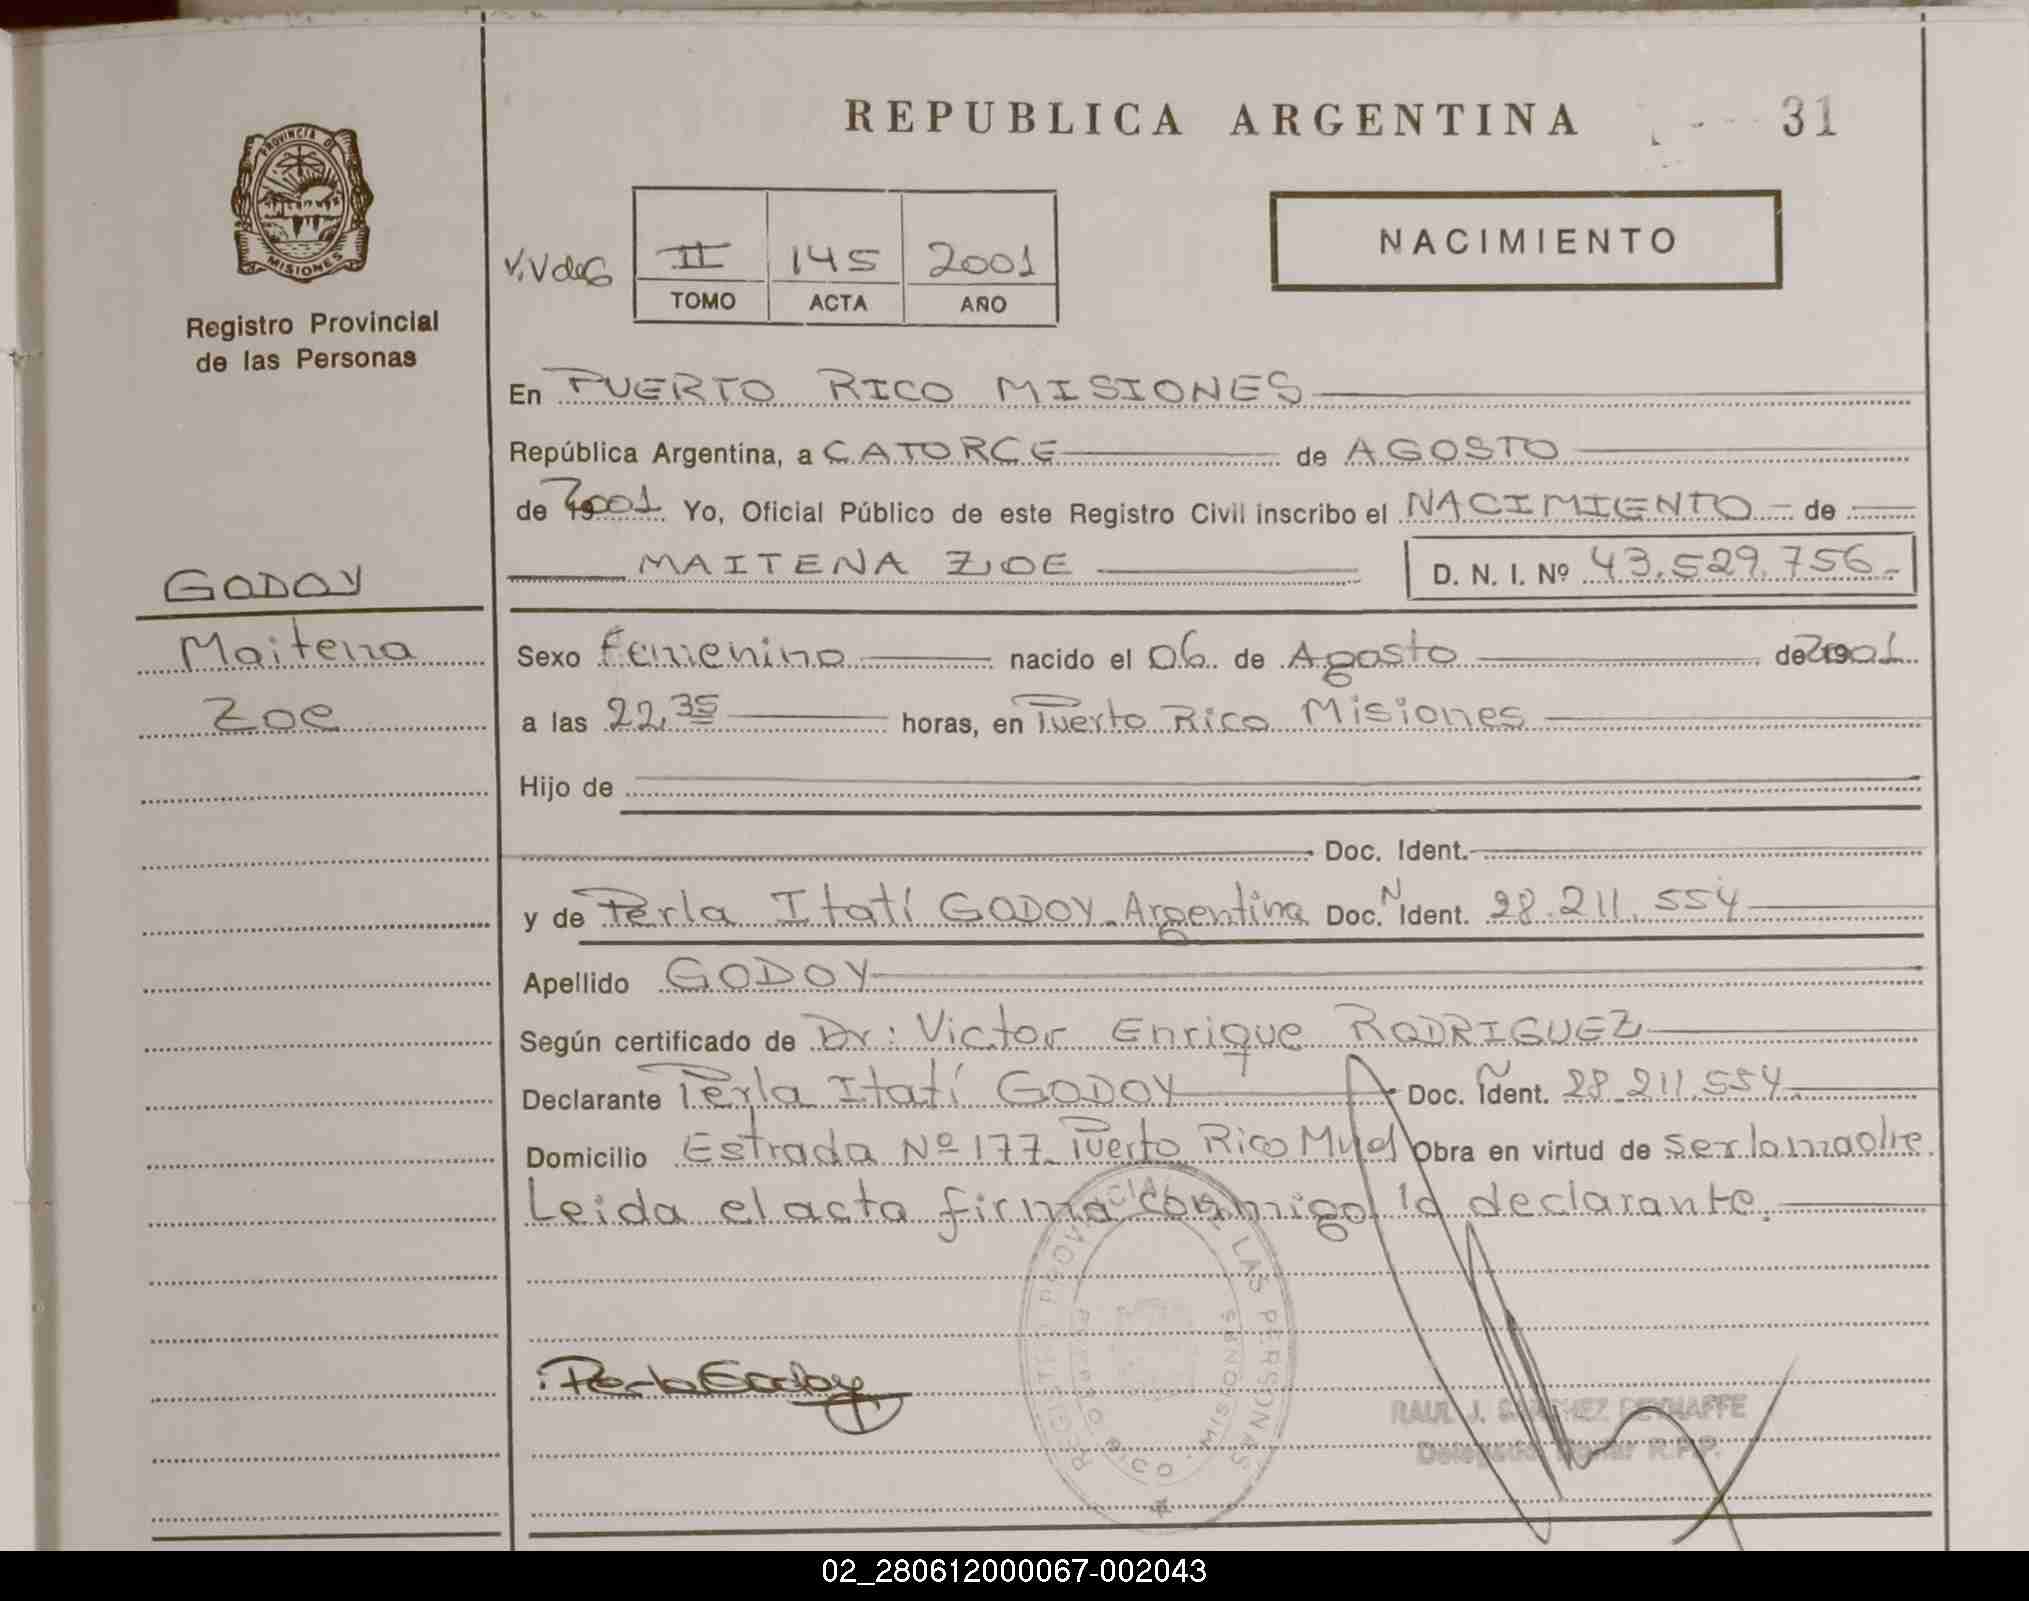 REPUBLICA ARGENTINA
31
PROVINCIA DE
MISIONES
Registro Provincial
de las Personas
V.V de G
II 145 2001
TOMO ACTA AÑO
NACIMIENTO
En PUERTO RICO MISIONES
República Argentina, a CATORCE de AGOSTO
de 2001 Yo, Oficial Público de este Registro Civil inscribo el NACIMIENTO de
MAITENA ZOE D. N. I. Nº 43.529.756.-
GODOY
Maitena
Zoe
Sexo Femenino nacido el 06 de Agosto de 2001
a las 22,35 horas, en Puerto Rico Misiones
Hijo de
Doc. Ident.
y de Perla Itatí GODOY - Argentina Doc. N Ident. 28.211.554
Apellido GODOY
Según certificado de Dr: Victor Enrique RODRIGUEZ
Declarante Perla Itatí GODOY Doc. N Ident. 28.211.554
Domicilio Estrada Nº 177 - Puerto Rico Mnes Obra en virtud de ser la madre.
Leida el acta firma conmigo la declarante.
REGISTRO PROVINCIAL DE LAS PERSONAS
PUERTO RICO - MISIONES
Perla Godoy
RAUL J. SANCHEZ
Delegado Titular R.P.P.
02_280612000067-002043